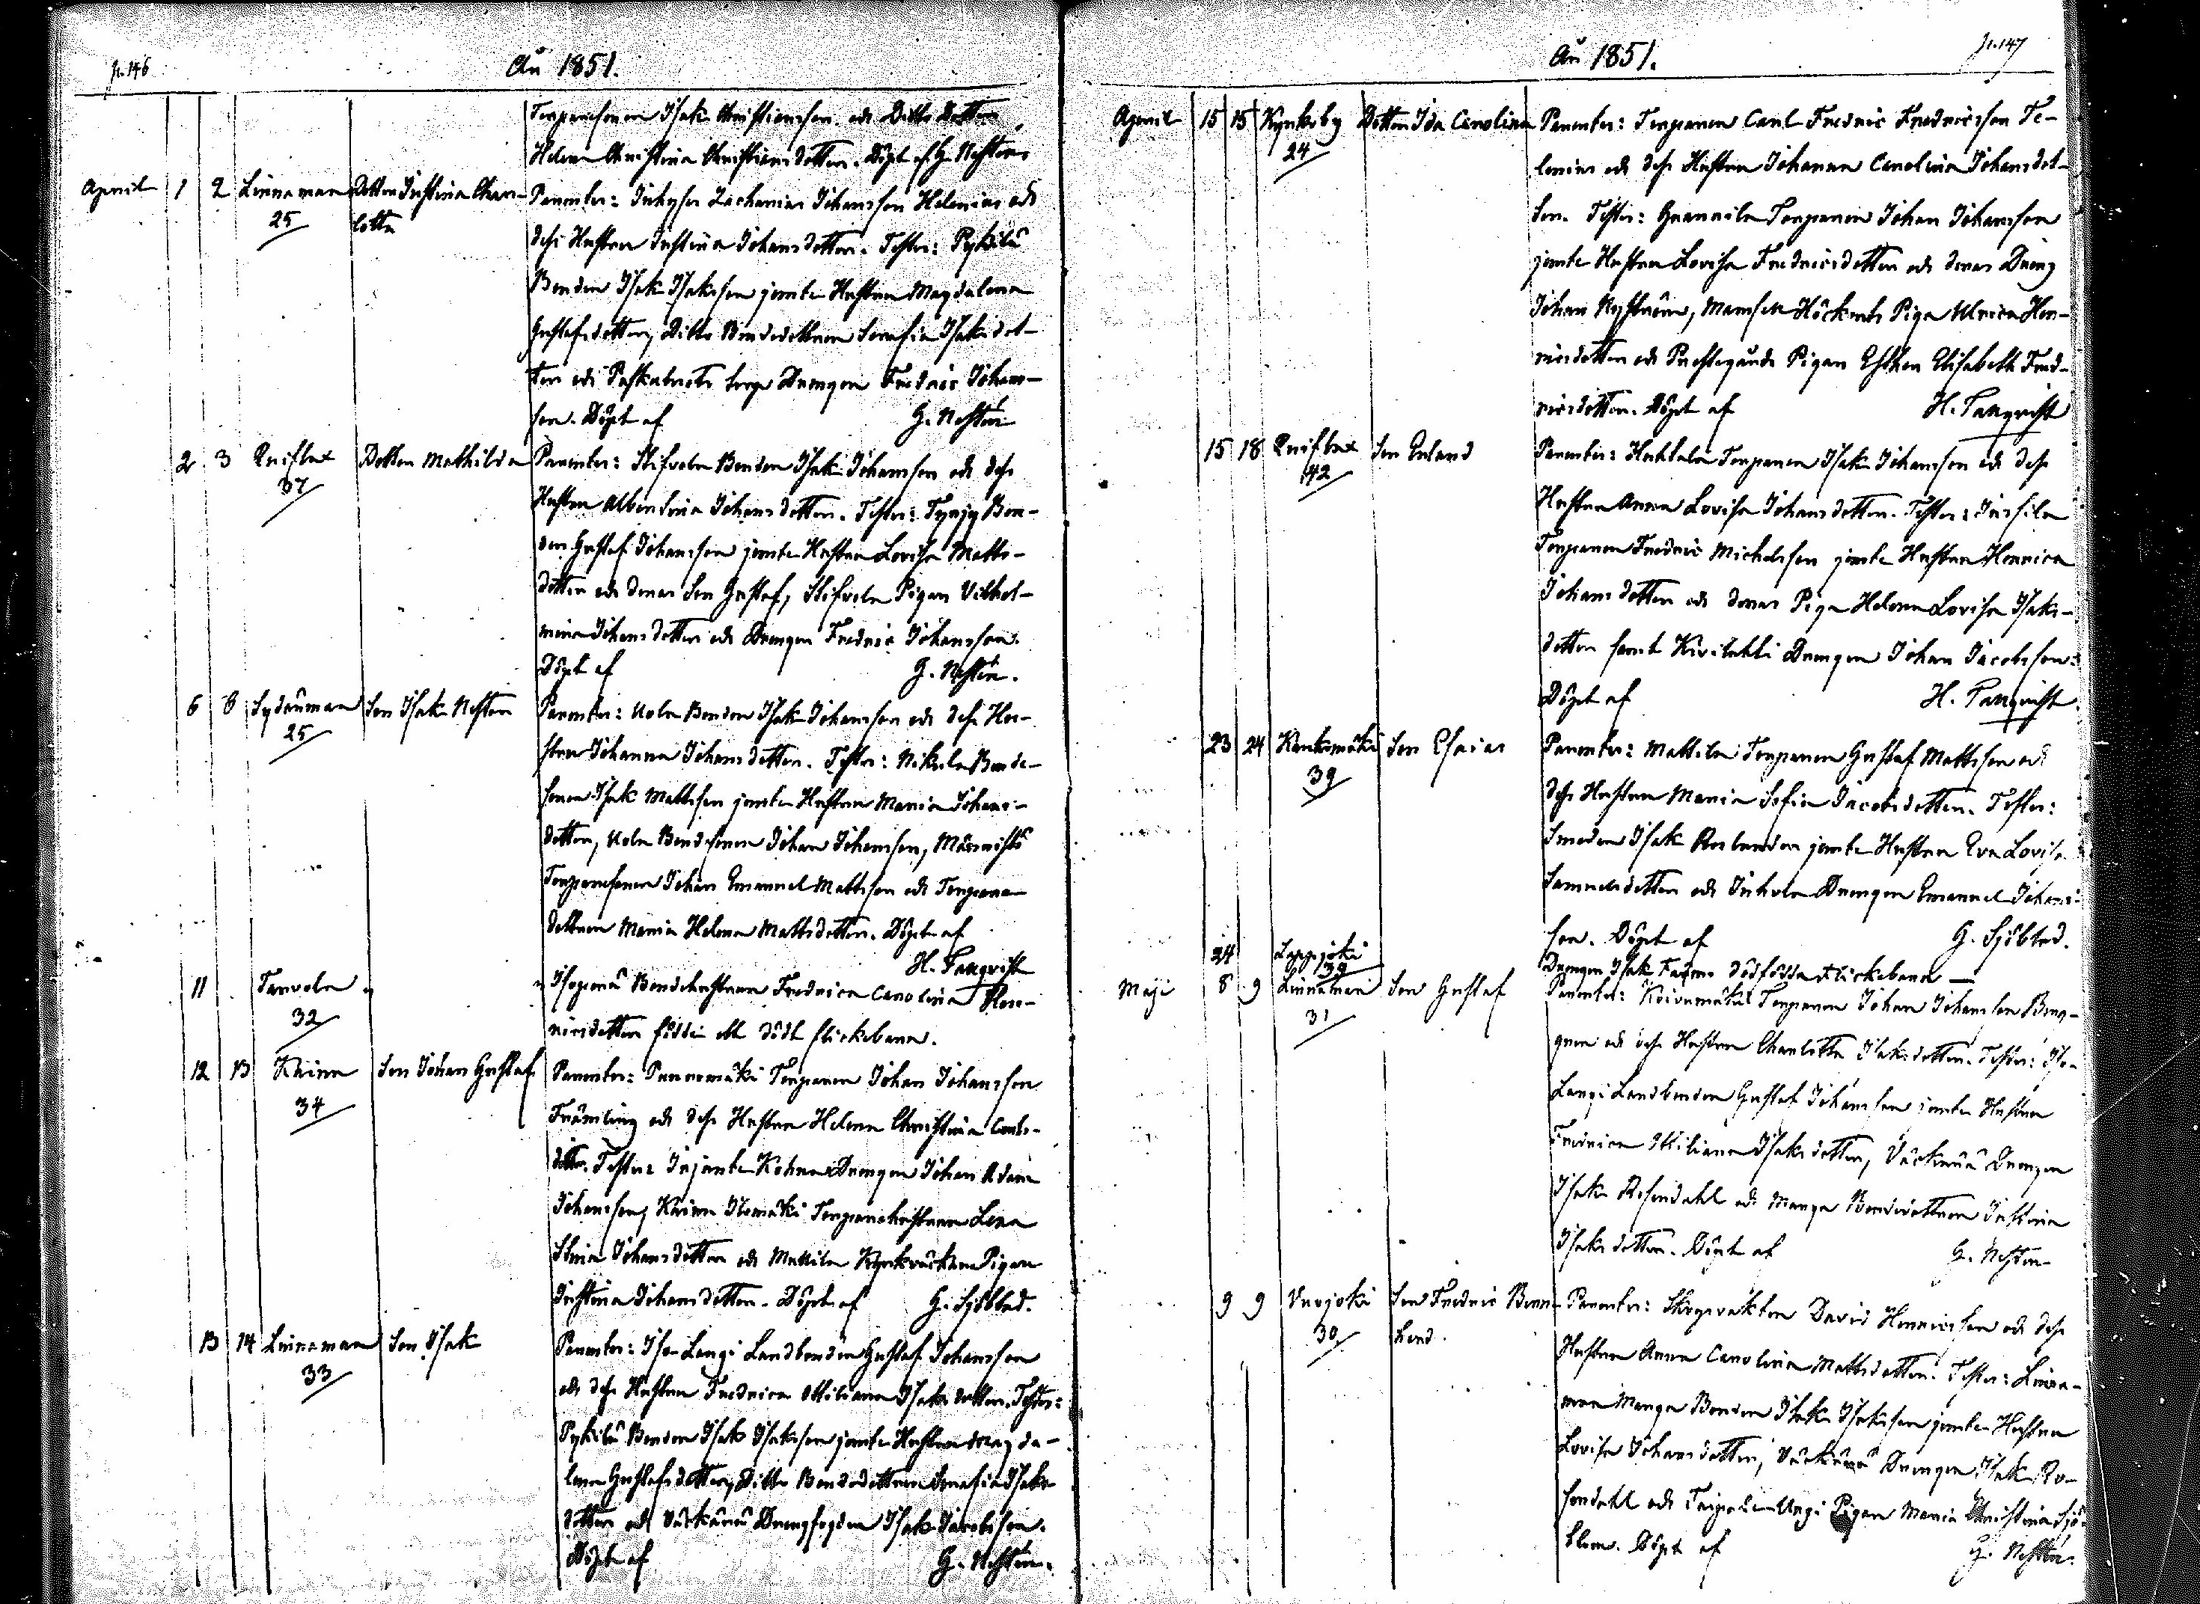 p. 146
Aŭ 1851.
Torparesonen Isak Christiansson och Ditto Dottren
Helena Christina Christiansdotter. Döpt af G. Nestor.
April 1 2 Linnamaa 25 Dottren Justina Char-
lotta
Parenter: Inhyses Zacharias Johansson Helenius och
dess Hustru Justina Johansdotter. Tester: Pykilä
Bonden Isak Isaksson jemte Hustrun Magdalena
Gustafsdotter, Ditto Bondedottren Serafia Isaksdot-
ter och Drengen Fredric Johans-
son. Döpt af G. Nestor
2 3 Qvistax 37 Dottren Mathilda
Parenter: Stifvola Bonden Isak Johansson och dess
Hustru Albertina Johansdotter. Tester: Bon-
den Gustaf Johansson jemte Hustrun Lovisa Matts-
dotter och deras Son Gustaf, Stifvola Pigan Vilhel-
mina Johansdotter och Drengen Fredric Johansson.
Döpt af G. Nestor.
6 8 Sydänmaa 25 Son Isak Nestor
Parenter: Uola Bonden Isak Johansson och dess Hu-
stru Johanna Johansdotter. Tester: Nikula Bonde-
sonen Isak Mattsson jemte Hustrun Maria Johans-
dotter, Uola Bondesonen Johan Johansson,
Torparesonen Johan Emanuel Mattsson och Torpare-
dottren Maria Helena Mattsdotter. Döpt af
H. Tanqvist
11 Tarvola 32
Isopenä Bondehustrun Fredrica Carolina Hen-
ricsdotter födde ett dödt flickebarn.
12 13 Khina 34 Son Johan Gustaf
Parenter: Torparen Johan Johansson
Främling och dess Hustru Helena Christina Carls-
dotter. Tester: Drengen Johan Adam
Johansson, Khina Torparehustrun Lena
Stina Johansdotter och Mattila Pigan
Justina Johansdotter. Döpt af G. Sjöblad.
13 14 Linnamaa 33 Son Isak
Parenter: Iso Langi Landbonden Gustaf Johansson
och dess Hustru Fredrica Ottiliana Isaksdotter. Tester:
Pykilä Bonden Isak Isaksson jemte Hustrun Magda-
lena Gustafsdotter, Ditto Bondedottren Serafia Isaks-
dotter och Väckärä Drengfogden Isak Jacobsson.
Döpt af G. Nestor.
Aŭ 1851.
p. 147
April 15 15 Kynksby 24 Dottren Ida Carolina
Parenter: Torparen Carl Fredric Fredricsson Te-
lenius och dess Hustru Johanna Carolina Johansdot-
ter. Tester: Grannila Torparen Johan Johansson
jemte Hustrun Lovisa Fredricsdotter och deras Dreng
Johan Nyström, Mamsell Höckerts Piga Ulrica Hen-
ricsdotter och Prestegårds Pigan Esther Elisabeth Fred-
ricsdotter. Döpt af H. Tanqvist
15 18 Qvistax 42 Son Erland
Parenter: Huhtala Torparen Isak Johansson och dess
Hustru Anna Lovisa Johansdotter. Tester: Jussila
Torparen Fredric Michelsson jemte Hustrun Henrica
Johansdotter och deras Piga Helena Lovisa Isaks-
dotter samt Kivilahti Drengen Johan Jacobsson.
Döpt af H. Tanqvist
23 24 Kauksmäki 39 Son Esaias
Parenter: Mattila Torparen Gustaf Mattsson och
dess Hustru Maria Sofia Jacobsdotter. Tester:
Smeden Isak Roslander jemte Hustrun Eva Lovisa
Samuelsdotter och Junkola Drengen Emanuel Johans-
son. Döpt af G. Sjöblad.
24 Lappjoki 39
Drengen Isak dödfödda flickebarn —
Maji 8 9 Linnamaa 31 Son Gustaf
Parenter: Koivumäki Torparen Johan Johansson Berg-
gren och dess Hustru Charlotta Isaksdotter. Tester: Iso-
Langi Landbonden Gustaf Johansson jemte Hustrun
Fredrica Ottiliana Isaksdotter, Väckärä Drengen
Isak Rosendahl och Manga Bondedottren Justina
Isaksdotter. Döpt af G. Nestor
9 9 Vuojoki 30 Son Fredric Bern-
hard.
Parenter: Skogvaktaren David Henricsson och dess
Hustru Anna Carolina Mattsdotter. Tester: Linna-
maa Manga Bonden Isak Isaksson jemte Hustrun
Lovisa Johansdotter, Väckärä Drengen Isak Ro-
sendahl och Taipale-Ungi Pigan Maria Christina Sjö-
blom. Döpt af G. Nestor.